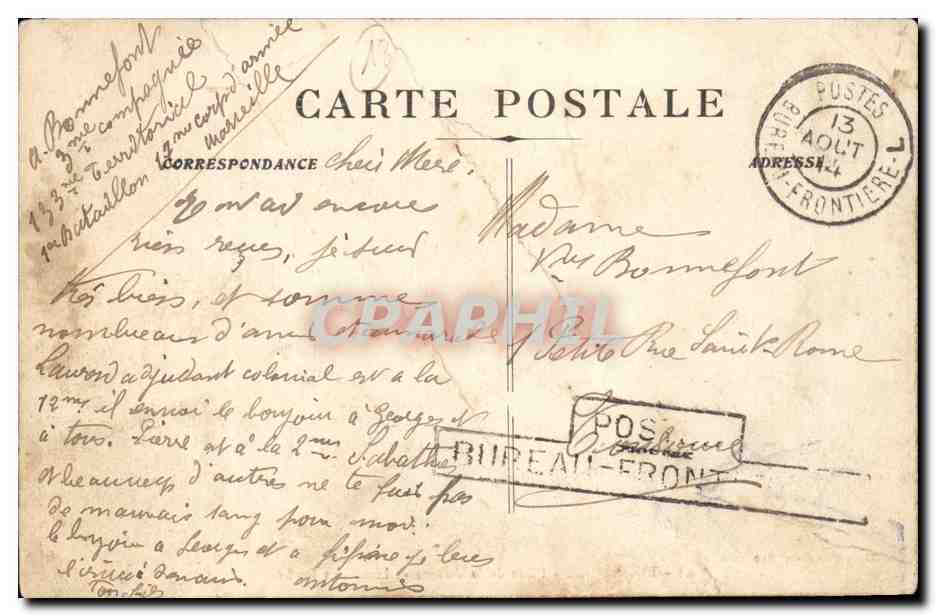 A. Bonnefont
3me compagnie
133me Territorial
1er Bataillon 17me corps d'armée
Marseille
13
CARTE POSTALE
CORRESPONDANCE
ADRESSE
POSTES
13
AOUT
14
BUREAU-FRONTIERE-L
Chere Mere,
encore
rien reçus, je suis
très bien, et somme
nombreux d'amis
adjudant colonial est a la
12me il envoi le bonjour à Georges et
à tous. Pierre est à la 2me Sabathié
et beaucoup d'autres ne te fais pas
de mauvais sang pour moi.
le bonjour a Georges et a
Antonin
Madame
Vve Bonnefont
1 Petite Rue Saint-Rome
Toulouse
POS
BUREAU-FRONT
CPAPHIL